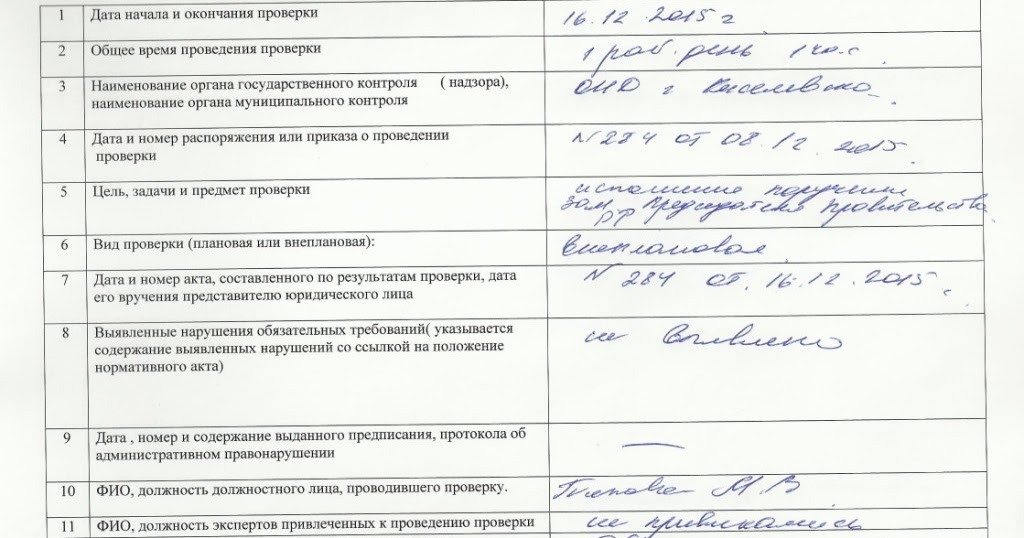 1 Дата начала и окончания проверки 16.12.2015 г
2 Общее время проведения проверки 1 раб. день 1 час
3 Наименование органа государственного контроля ( надзора), ОНД г Киселевска
наименование органа муниципального контроля
4 Дата и номер распоряжения или приказа о проведении N 284 от 08.12.2015.
проверки
5 Цель, задачи и предмет проверки исполнение поручения
зам. Председателя Правительства
РФ
6 Вид проверки (плановая или внеплановая): Внеплановая
7 Дата и номер акта, составленного по результатам проверки, дата N 284 от. 16.12.2015.
его вручения представителю юридического лица
8 Выявленные нарушения обязательных требований( указывается не выявлено
содержание выявленных нарушений со ссылкой на положение
нормативного акта)
9 Дата , номер и содержание выданного предписания, протокола об —
административном правонарушении
10 ФИО, должность должностного лица, проводившего проверку. М.В
11 ФИО, должность экспертов привлеченных к проведению проверки не привлекались